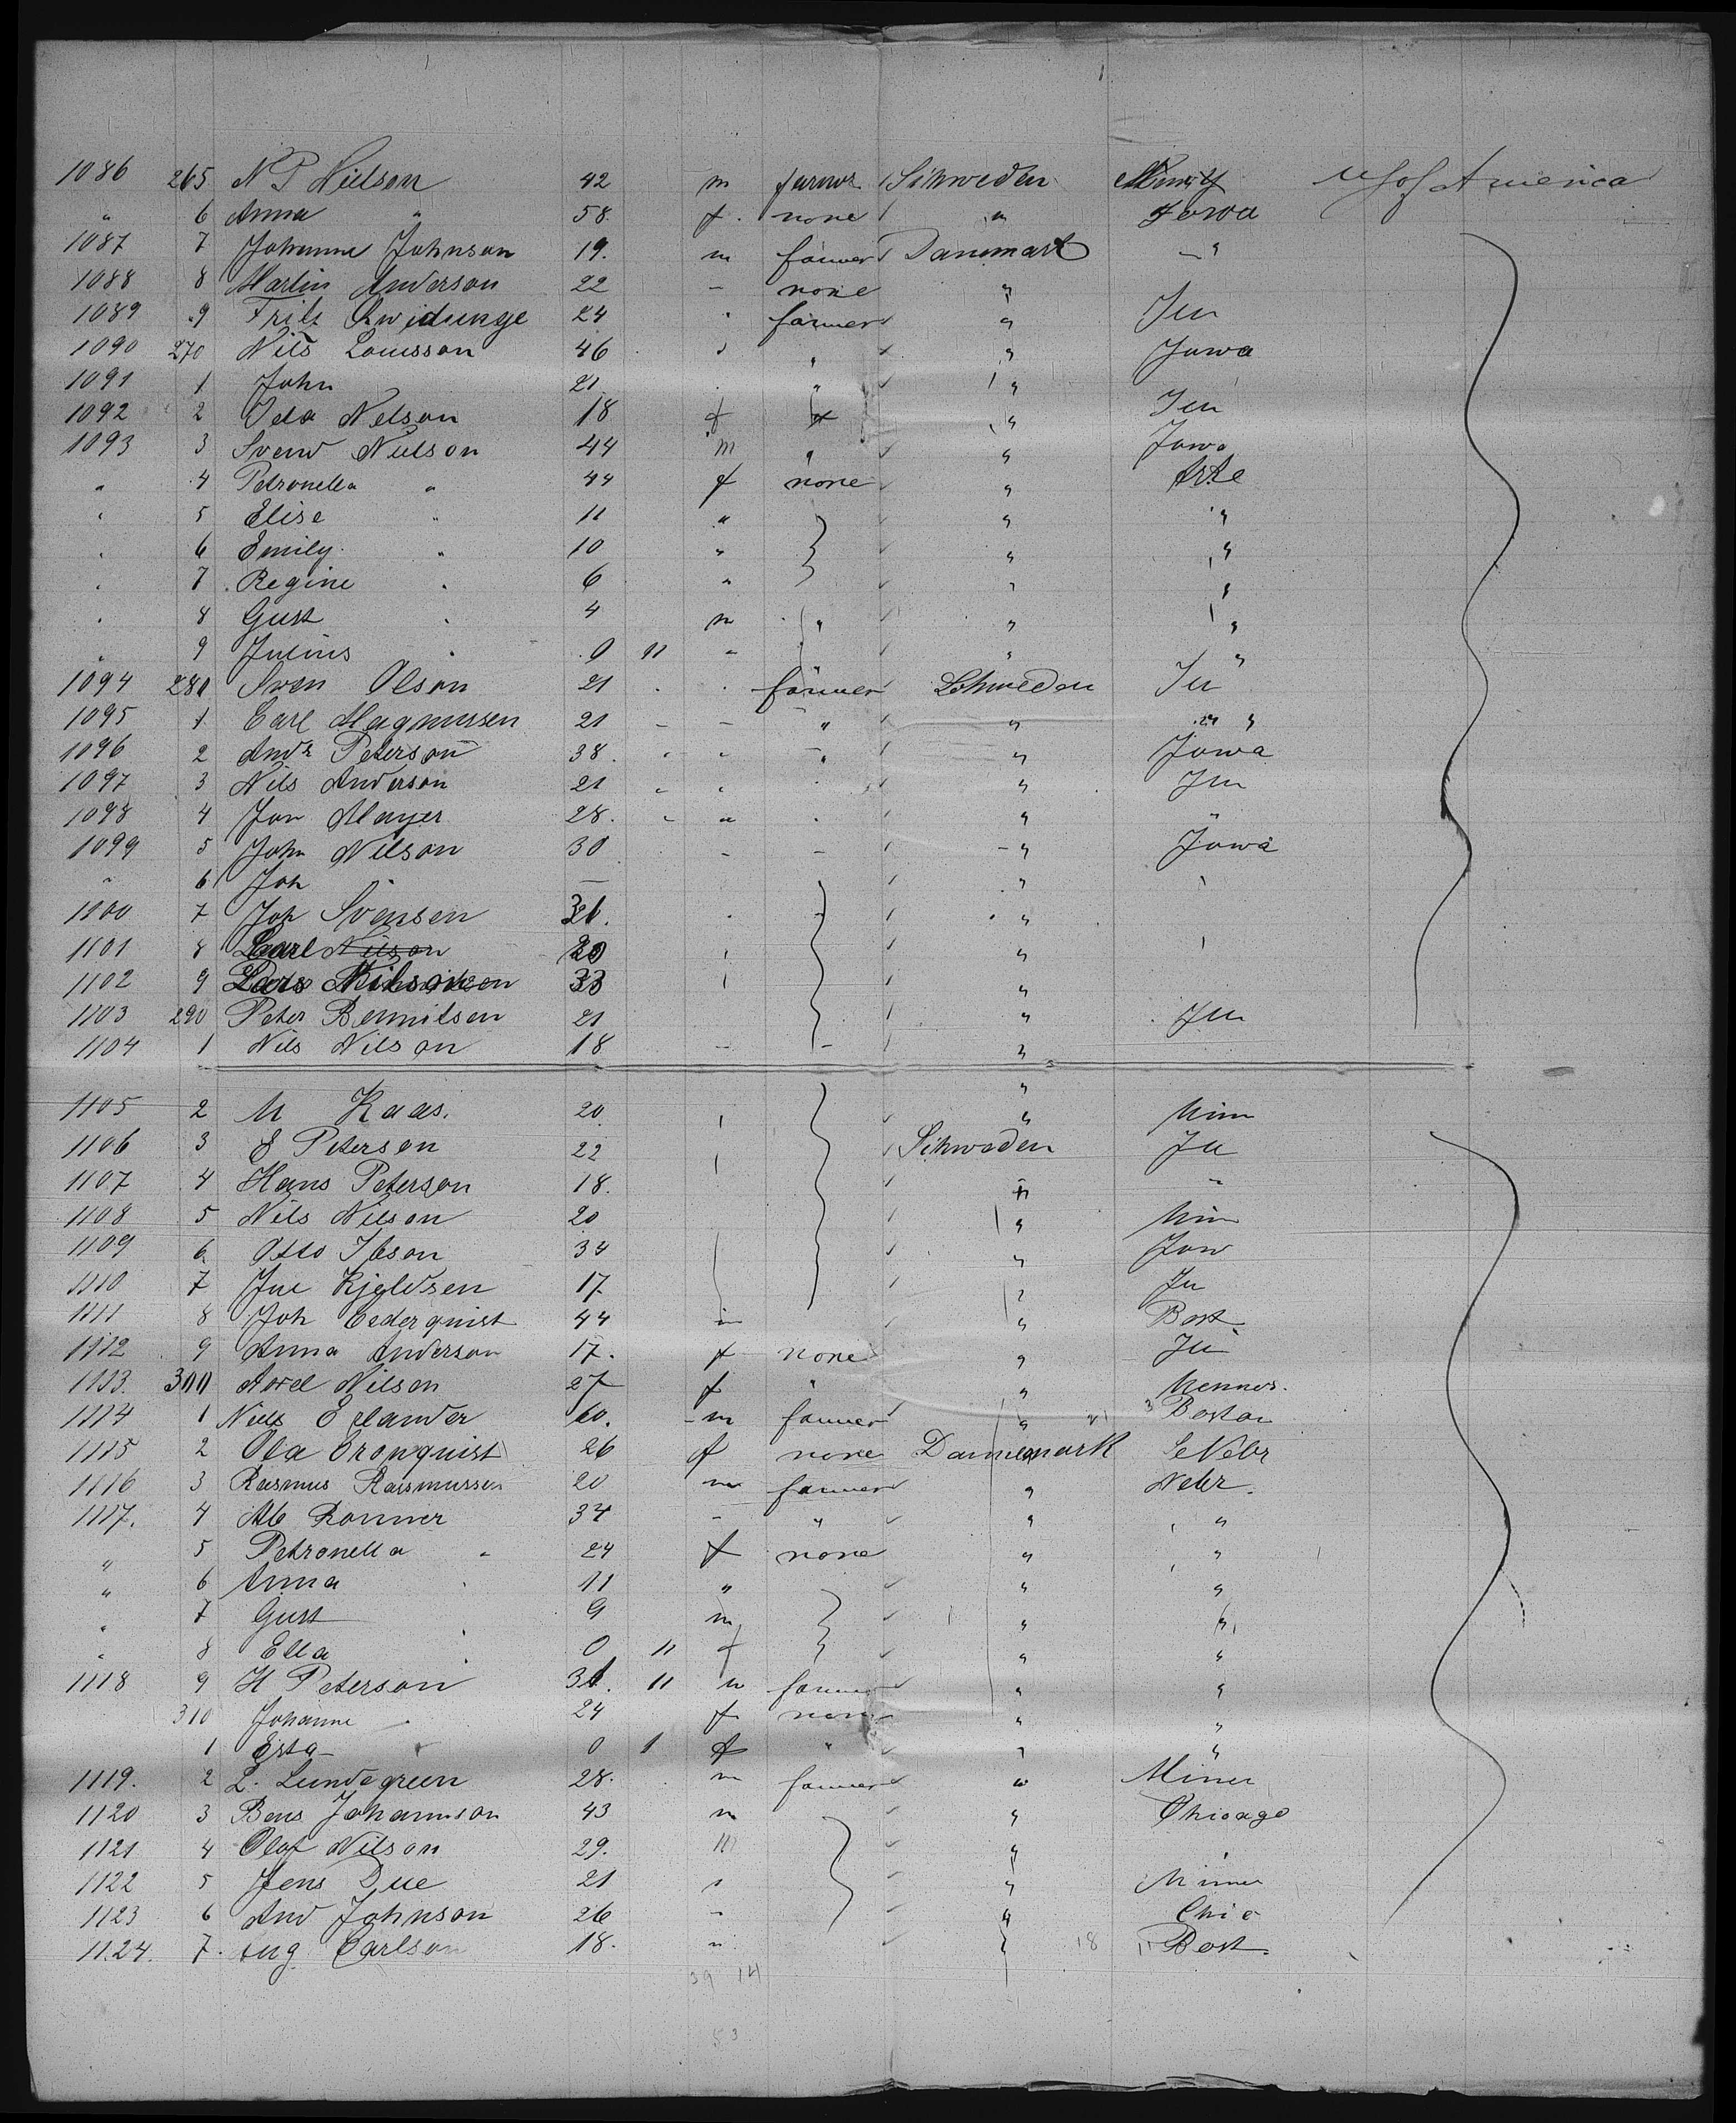 1086 265 N P Nielson 42 m farmer Schweden U S of America
" 6 Anna " 58 f. none " Iowa
1087 7 Johanne Johnson 19. m farmer Danemark "
1088 8 Martin Anderson 22 - none "
1089 9 Fritz 24 " farmer " Ill
1090 270 Nils Louisson 46 " " " Iowa
1091 1 John 21 " " "
1092 2 Nelson 18 f " Ill
1093 3 Svend Nielson 44 m " " Iowa
" 4 Petronella " 44 f none "
" 5 Elise " 11 " " "
" 6 Emily " 10 " " "
" 7 Regine " 6 " " "
" 8 Gust " 4 m " " "
" 9 Julius " 0 11 " " "
1094 280 Sven Olson 21 " farmer Schweden Ill
1095 1 Carl Magnussen 21 - - " " "
1096 2 Andr Peterson 38. " " " " Iowa
1097 3 Nils Anderson 21 " " " Ill
1098 4 Jon Mayer 28. " " " " "
1099 5 John Nilson 30 - - " Iowa
" 6 Joh " - " "
1100 7 Joh Svensen "
1101 8 Carl 20 " "
1102 9 Lars 33 " "
1103 290 Peter Bennitsen 21 " Ill
1104 1 Nils Nilson 18 - - "
"
1105 2 M Kaas. 20 " " Minn
1106 3 E Peterson 22 " Schweden Ill
1107 4 Hans Peterson 18. " "
1108 5 Nils Nilson 20 " Minn
1109 6 Otto Ibson 34 " Iow
1110 7 Kjeldsen 17 " Ill
1111 8 Joh Cederquist 44 m " Bost
1112 9 Anna Anderson 17. f none " Ill
1113. 300 Axel Nilson 27 f " "
1114 1 Niels Erlander 60. m farmer " Boston
1115 2 Ola Cronquist 26 f none Dannemark Nebr
1116 3 Rasmus Rasmussen 20 m farmer " Nebr.
1117. 4 Ronner 34 - " " "
" 5 Petronella " 24 f none " "
" 6 Anna " 11 " " "
" 7 Gust " 9 m " "
" 8 Ella " 0 11 f " " "
1118 9 H Peterson 31. 11 m farmer " "
310 Johanne " 24 f none " "
1 " 0 1 f " " "
1119. 2 L. Lundegreen 28. m farmer " Minn
1120 3 Bens Johannson 43 m " Chicago
1121 4 Olof Nilson 29. m " "
1122 5 Jens Due 21 " " Minn
1123 6 And Johnson 26 - " Chic
1124. 7. Aug Carlson 18. " " 18 11 Bost.
39 14
53